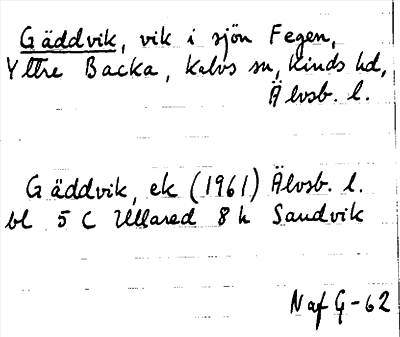 Gäddvik, vik i sjön Fegen,
Yttre Backa, Kalvs sn, Kinds hd,
Älvsb. l.
Gäddvik, ek (1961) Älvsb. l.
bl 5 C Ullared 8 h Sandvik
Naf G-62